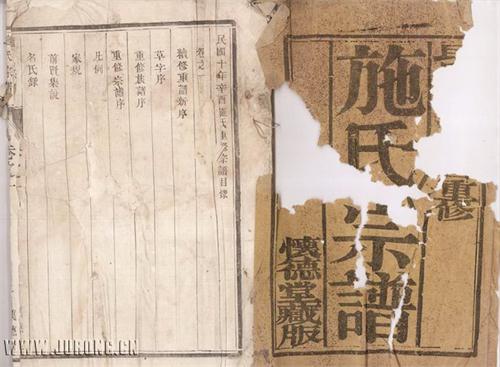 重修
施氏宗譜
懷德堂藏版
民國十年辛酉施氏重修宗譜目錄
卷之一
續修重譜新序
草字序
重修族譜序
重修宗譜序
凡例
家規
前賢集說
名氏錄
WWW.JURONG.CN